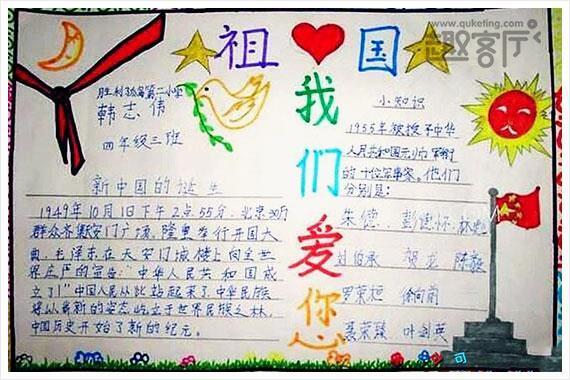 www.quketing.com
趣客厅
祖 国
我们爱你
胜利孤岛第二小学
韩志伟
四年级三班
新中国的诞生
1949年10月1日下午2点55分,北京30万
群众齐集天安门广场,隆重举行开国大
典,毛泽东在天安门城楼上向全世
界庄严的宣告:"中华人民共和国成
立了!"中国人民从此站起来了,中华民族
将以崭新的姿态屹立于世界民族之林,
中国历史开始了新的纪元。
小知识
1955年被授予中华
人民共和国元帅军衔
的十位军事家,他们
分别是:
朱德、彭德怀、林彪
刘伯承 贺龙 陈毅
罗荣桓 徐向前
聂荣臻 叶剑英